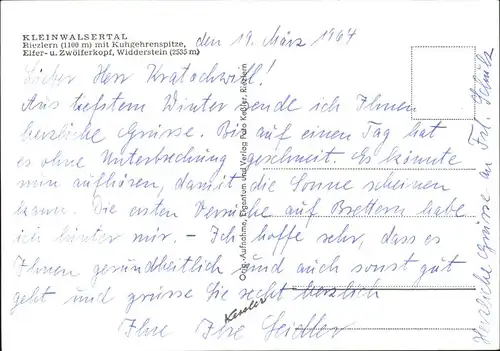 KLEINWALSERTAL
Riezlern (1100 m) mit Kuhgehrenspitze,
Elfer- u. Zwölferkopf, Widderstein (2535 m)
den 19. März 1964
Lieber Herr Kratochwill!
Aus tiefstem Winter sende ich Ihnen
herzliche Grüsse. Bis auf einen Tag hat
es ohne Unterbrechung geschneit. Es könnte
nun aufhören, damit die Sonne scheinen
kann. Die ersten Versuche auf Brettern habe
ich hinter mir. – Ich hoffe sehr, dass es
Ihnen gesundheitlich und auch sonst gut
geht und grüsse Sie recht herzlich
Ihre Ihre
Orig.-Aufnahme, Eigentum und Verlag Foto Kessler, Riezlern
Kessler
Herzliche Grüsse an Frl. Schulz